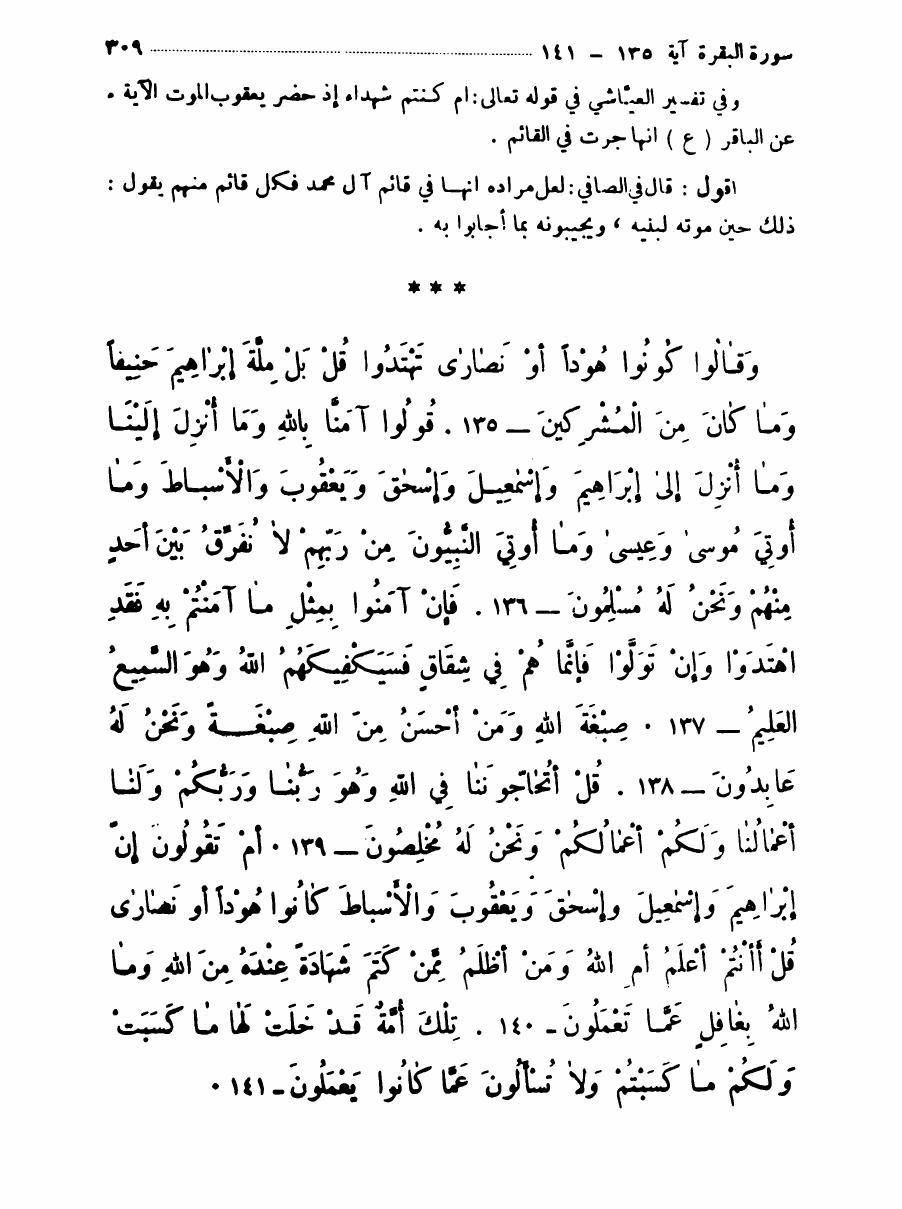 سورة البقرة آية ١٣٥ – ١٤١ ........................ ٣٠٩
وفي تفسير العيّاشي في قوله تعالى: ام كنتم شهداء إذ حضر يعقوب الموت الآية .
عن الباقر ( ع ) انها جرت في القائم .
اقول : قال في الصافي : لعل مراده انها في قائم آل محمد فكل قائم منهم يقول :
ذلك حين موته لبنيه ، ويجيبونه بما أجابوا به .
* * *
وَقٰالُوا كُونُوا هُوْداً أوْ نَصٰارٰى تَهْتَدُوا قُلْ بَلْ مِلَّةَ إِبْرٰاهِيمَ حَنِيفاً
وَمٰا كٰانَ مِنَ الْمُشْرِكِينَ – ١٣٥ . قُولُوا آمَنَّا بِاللهِ وَمَا أُنْزِلَ إِلَيْنَا
وَمٰا أُنْزِلَ إِلىٰ إِبْرَاهِيمَ وَإِسْمٰعِيلَ وَإِسْحٰقَ وَيَعْقُوبَ وَالْأَسْبٰاطَ وَمٰا
أُوتِيَ مُوسىٰ وَعِيسىٰ وَمٰا أُوتِيَ النَّبِيُّونَ مِنْ رَبِّهِمْ لاٰ نُفَرِّقُ بَيْنَ أَحَدٍ
مِنْهُمْ وَنَحْنُ لَهُ مُسْلِمُونَ – ١٣٦ . فَإِنْ آمَنُوا بِمِثْلِ مٰا آمَنْتُمْ بِهِ فَقَدِ
اهْتَدَوْا وَإِنْ تَوَلَّوْا فَإِنَّمٰا هُمْ فِي شِقَاقٍ فَسَيَكْفِيكَهُمُ اللهُ وَهُوَ السَّمِيعُ
العَلِيمُ – ١٣٧ . صِبْغَةَ اللهِ وَمَنْ أحْسَنُ مِنَ اللهِ صِبْغَةً وَنَحْنُ لَهُ
عَابِدُونَ – ١٣٨ . قُلْ أَتُحٰاجّونَنٰا فِي اللهِ وَهُوَ رَبُّنٰا وَرَبُّكُمْ وَلَنٰا
أعْمٰالُنٰا وَلَكُمْ أعْمٰالُكُمْ وَنَحْنُ لَهُ مُخْلِصُونَ – ١٣٩ . أمْ تَقُولُونَ إِنَّ
إِبْرٰاهِيمَ وَإِسْمٰعِيلَ وإِسْحٰقَ وَيَعْقُوبَ وَالْأَسْبٰاطَ كٰانُوا هُوْداً أو نَصٰارٰى
قُلْ أأنْتُمْ أعْلَمُ أمِ اللهُ وَمَنْ أظْلَمُ مِمَّنْ كَتَمَ شَهٰادَةً عِنْدَهُ مِنَ اللهِ وَمٰا
اللهُ بِغٰافِلٍ عَمّٰا تَعْمَلُونَ – ١٤٠ . تِلْكَ أُمَّةٌ قَدْ خَلَتْ لَهٰا مٰا كَسَبَتْ
وَلَكُمْ مٰا كَسَبْتُمْ وَلاٰ تُسْألُونَ عَمّٰا كٰانُوا يَعْمَلُونَ – ١٤١ .